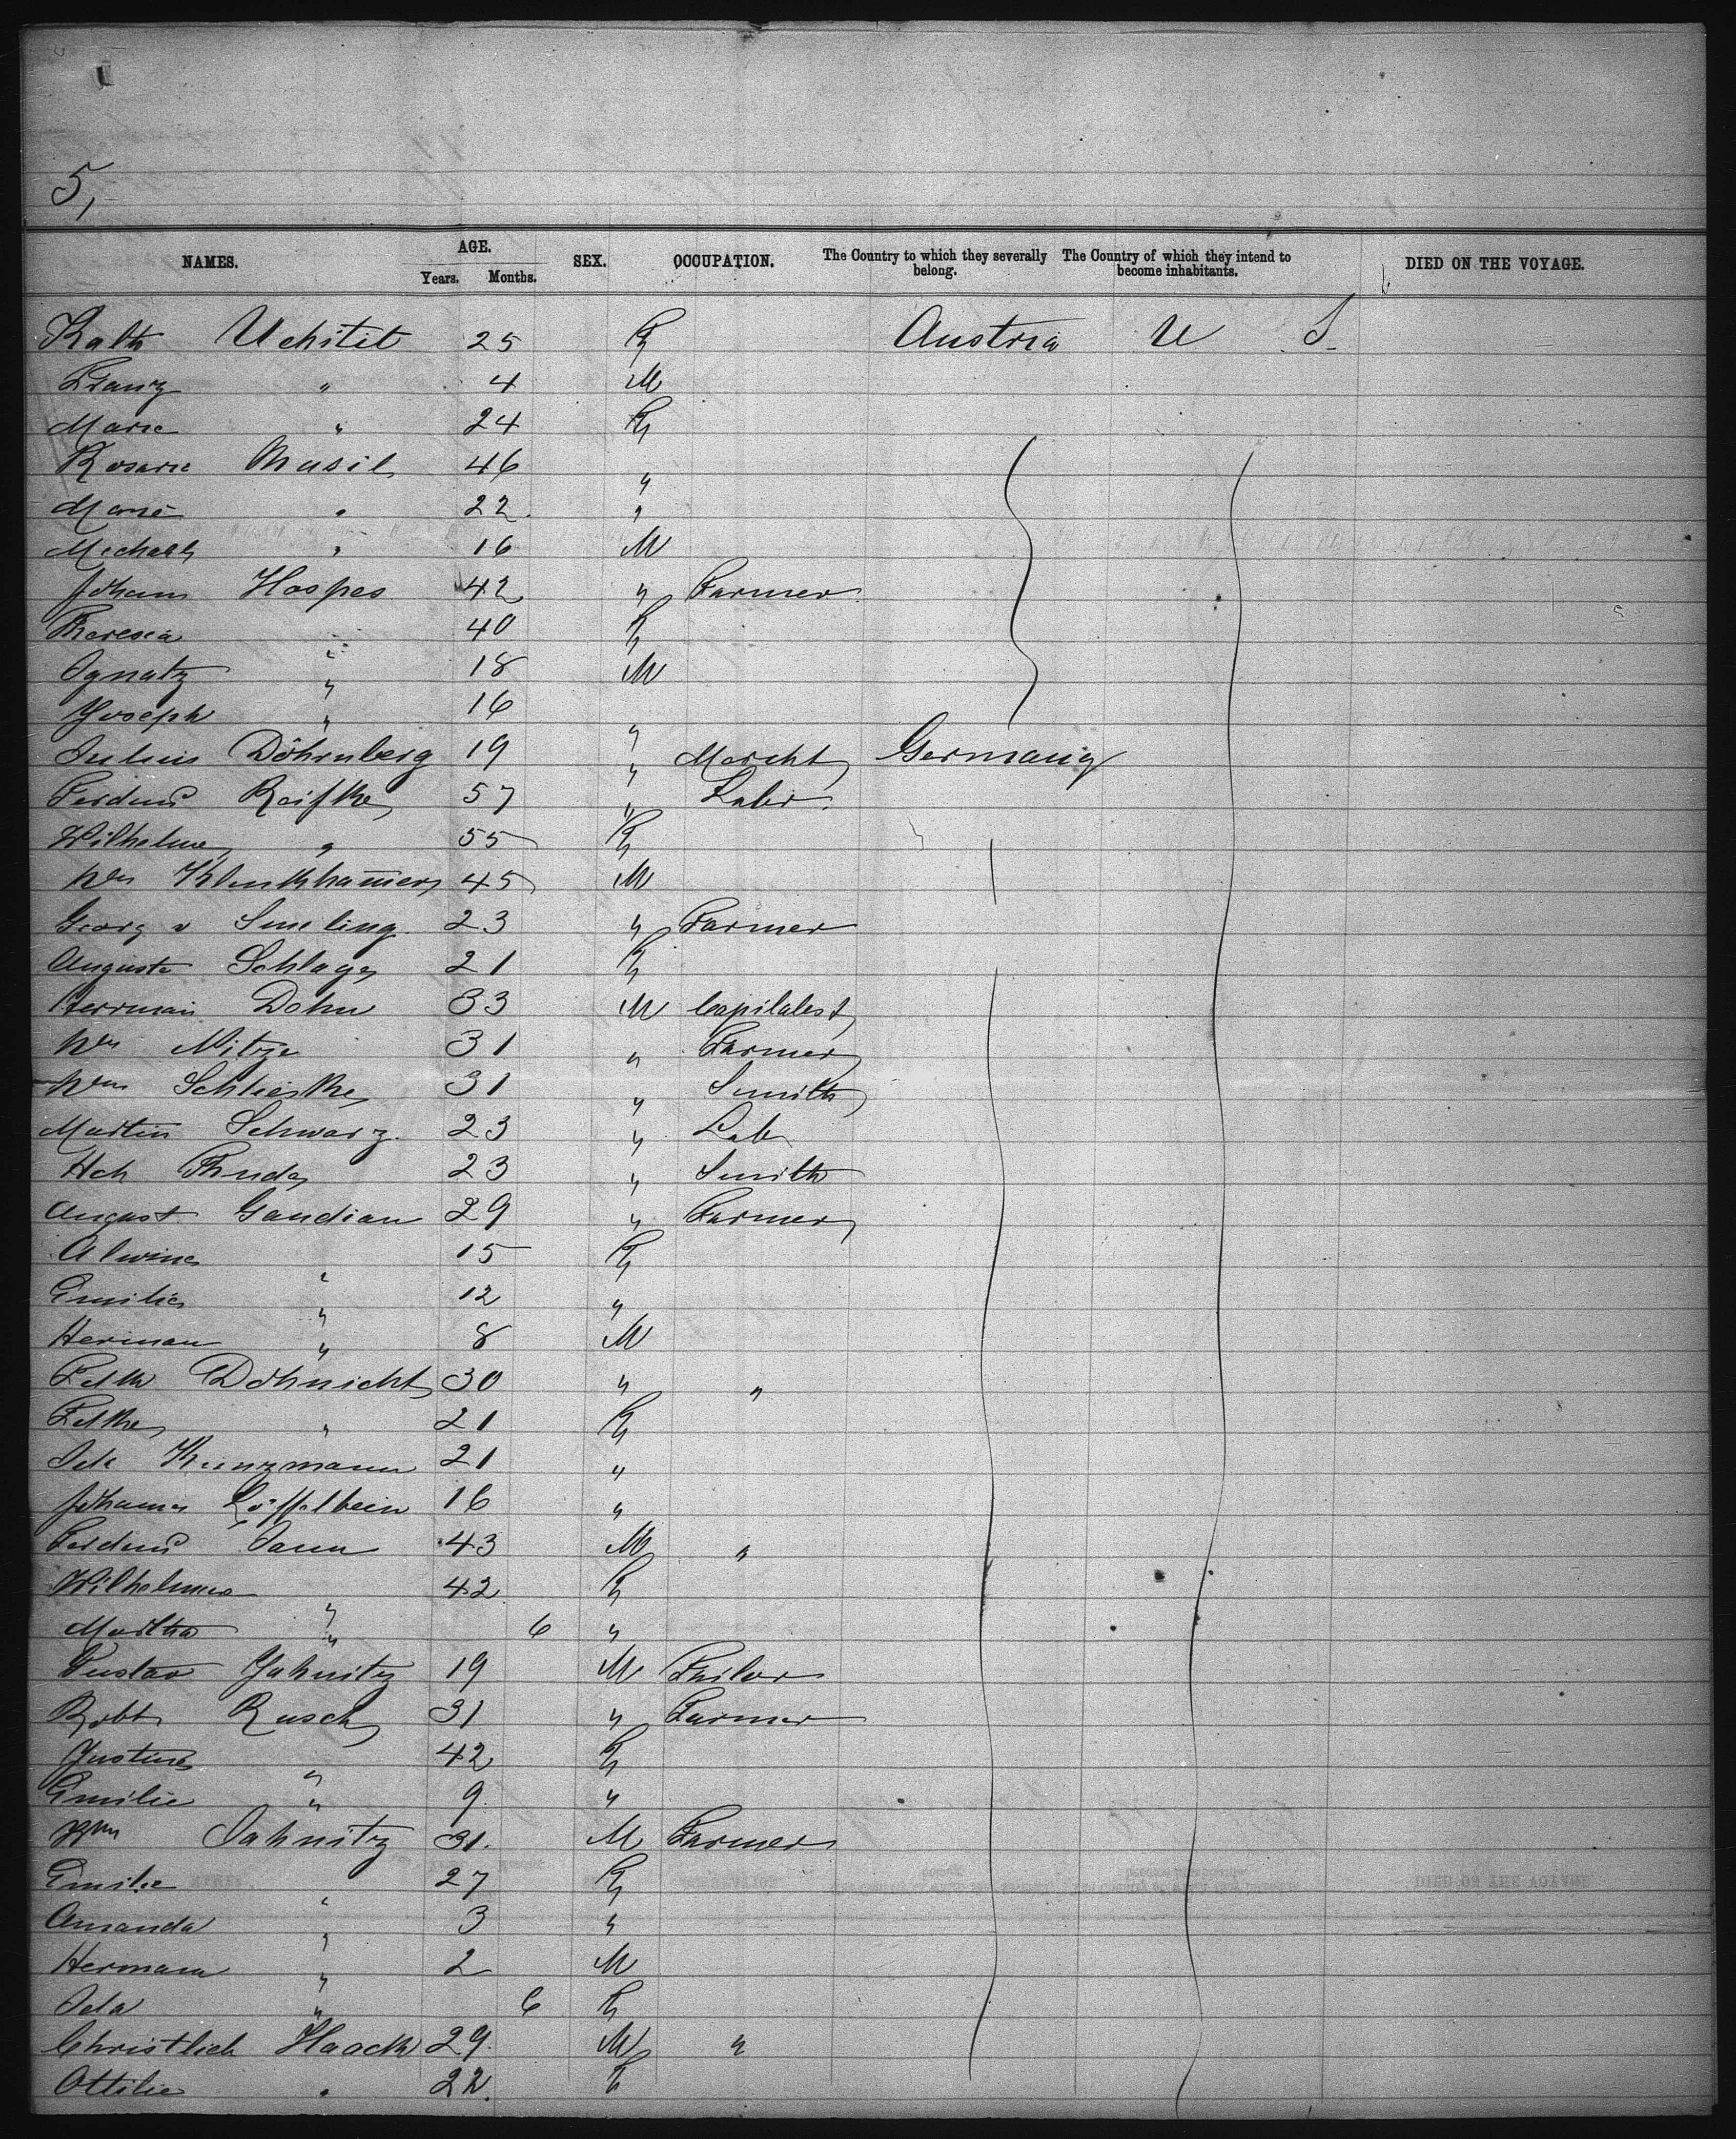 5,
NAMES. AGE. Years. Months. SEX. OCCUPATION. The Country to which they severally belong. The Country of which they intend to become inhabitants. DIED ON THE VOYAGE.
Kath Uchitil 25 F Austria U S
Franz " 4 M
Marie " 24 F
Rosarie Musil 46 "
Marie " 22 "
Michael " 16 M
Johann Hospes 42 " Farmer
Theresia " 40 F
Ignatz " 18 M
Joseph " 16 "
Julius Döhrnberg 19 " Marcht Germany
Ferdind Reifke 57 " Labr
Wilhelme " 55 F
Wm 45 M
Georg v Smeling 23 " Farmer
Auguste Schlage 21 F
Herrman Dohn 33 M Capitalist
Wm Nitze 31 " Farmer
Wm Schlieske 31 " Smith
Martin Schwarz 23 " Lab
Hch Thude 23 " Smith
August Gaudian 29 " Farmer
Alwine " 15 F
Emilie " 12 "
Herman " 8 M
Döhnicht 30 " "
" 21 F
Ida Kunzmann 21 "
Johanna Löffelbein 16 "
Ferdind Jann 43 M "
Wilhelmine " 42 F
Martha " 6 "
Gustav Jahnitz 19 M Tailor
Robt Rusch 31 " Farmer
Justine " 42 F
Emilie " 9 "
Wm Jahnitz 31 M Farmer
Emilie " 27 F
Amanda " 3 "
Hermann " 2 M
Ida " 6 F
Christlieb Haack 29 M "
Ottilie " 22 F